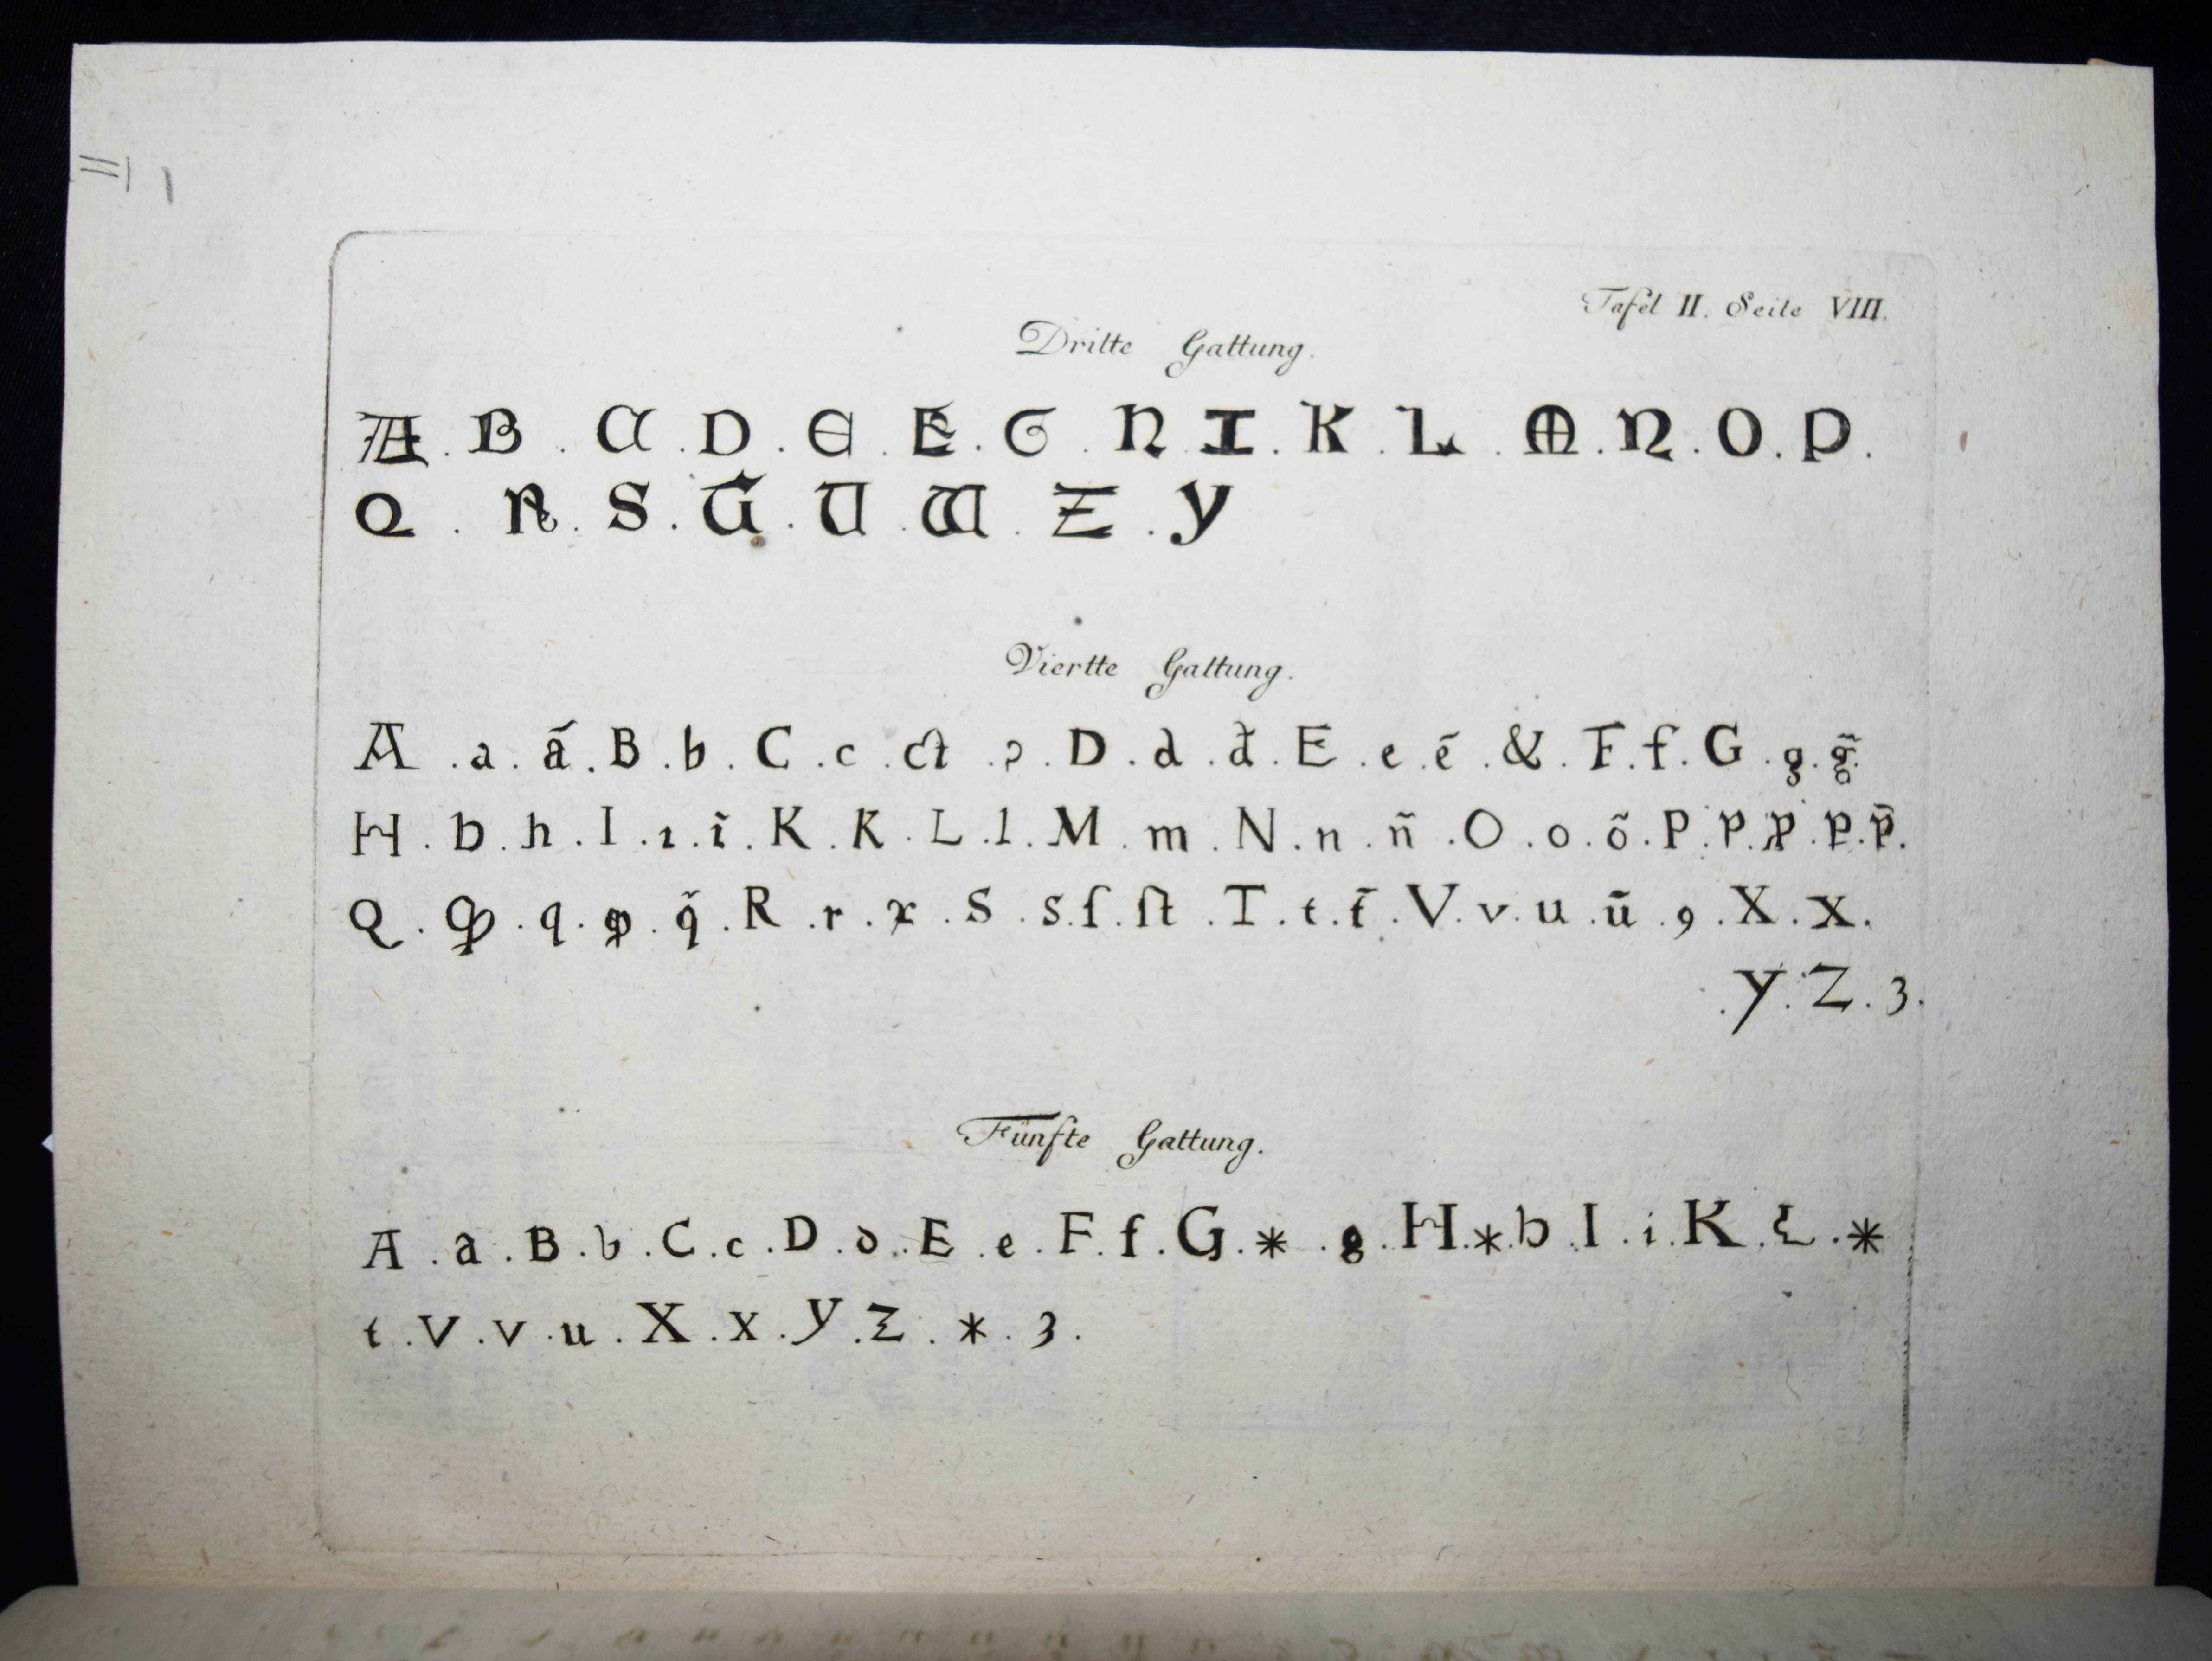 Tafel II. Seite VIII.
Dritte Gattung.
A . B . C . D . E . E . G . H . I . K . L . M . N . O . P .
Q . R . S . G . U . W . Z . Y
Viertte Gattung.
A . a . ā . B . b . C . c . ct . ɔ . D . d . đ . E . e . ē . & . F . f . G . g . g̃ .
H . b . h . I . ı . ĩ . K . K . L . l . M . m . N . n . ñ . O . o . õ . P . p . p . p . p̃ .
Q . Q . q . q . q̃ . R . r . r . S . s . ſ . ſt . T . t . t̃ . V . v . u . ũ . 9 . X . x .
. Y . Z . 3 .
Fünfte Gattung.
A . a . B . b . C . c . D . d . E . e . F . f . G . * . g . H . * . b . I . i . K . L . *
t . V . v . u . X . x . Y . Z . * . 3 .